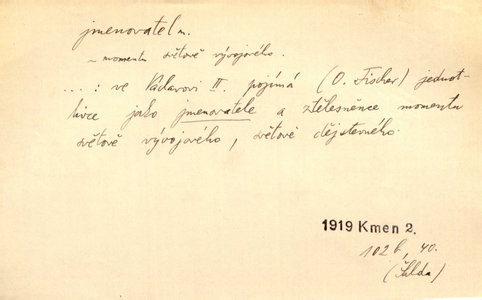 jmenovatel m.
~ momentu světově vývojového.
...: ve Václavovi II. pojímá (O. Fischer) jednot-
livce jako jmenovatele a ztělesněnce momentu
světově vývojového, světově dějstevného.
1919 Kmen 2.
102b, 40.
(Šalda)